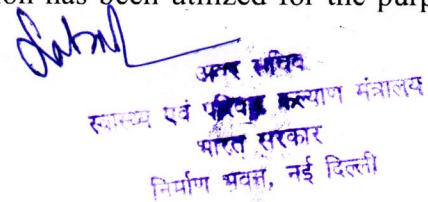 ion has been utilized for the purp
अवर सचिव
स्वास्थ्य एवं परिवार कल्याण मंत्रालय
भारत सरकार
निर्माण भवन, नई दिल्ली